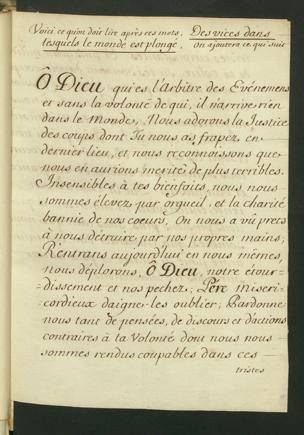 Voici ce qu'on doit lire après ces mots. Des vices dans
lesquels le monde est plongé. On ajoutera ce qui suit
Ô Dieu qui es l'Arbitre des Evénemens
et sans la volonté de qui, il n'arrive rien
dans le Monde, Nous adorons la Justice
des coups dont Tu nous as frapez en
dernier lieu, et nous reconnoissons que
nous en aurions merité de plus terribles.
Insensibles à tes bienfaits, nous nous
sommes élevez par orgueil, et la charité
bannie de nos coeurs, On nous a vû prets
à nous détruire par nos propres mains;
Rentrans aujourd'hui en nous mêmes,
nous déplorons, Ô Dieu, notre étour-
dissement et nos pechez; Pére miseri-
cordieux daigne-les oublier; Pardonne
nous tant de pensées, de discours et d'actions
contraires à ta Volonté dont nous nous
sommes rendus coupables dans ces
tristes